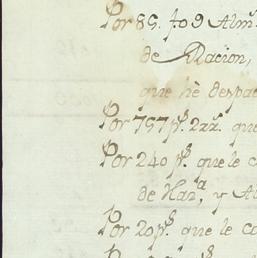 Por 85. fo 9 Alm.s
de Racion,
que hè despac
Por 757 p.s 2 rr.s que
Por 240 p.s que le c
de Haz.a, y Al
Por 20 p.s que le co